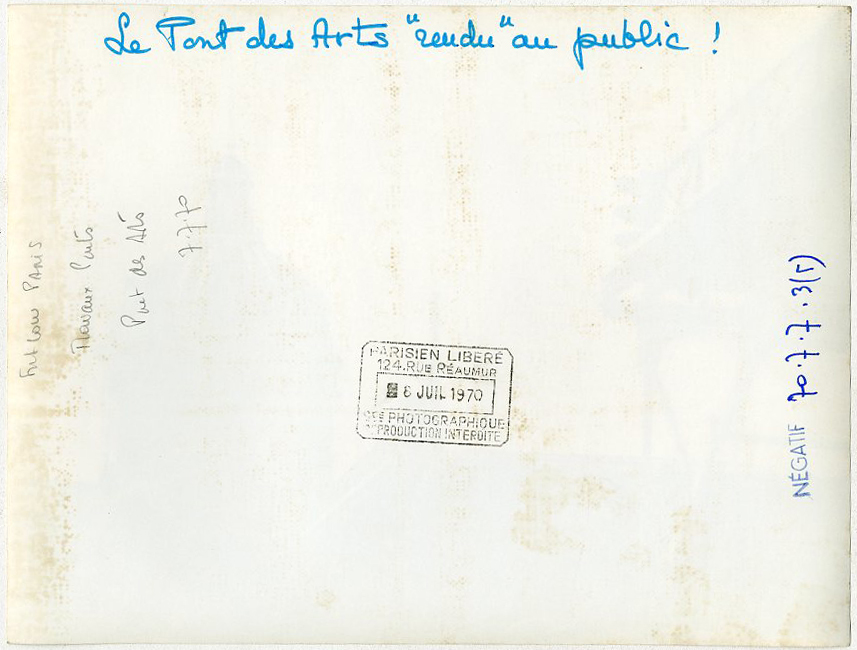 Le Pont des Arts "rendu" au public !
PARIS
Travaux Ponts
Pont des Arts
7.7.70
PARISIEN LIBERÉ
124.RUE RÉAUMUR
8 JUIL 1970
PHOTOGRAPHIQUE
REPRODUCTION INTERDITE
NÉGATIF 70.7.7.3(5)